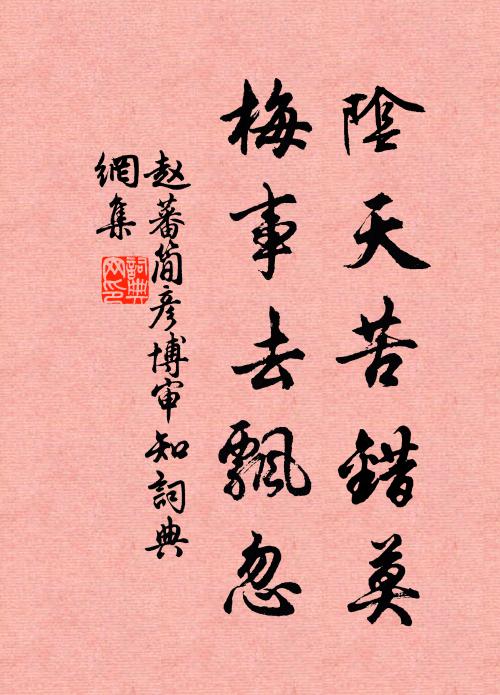 陰天苦錯莫
梅事去飄忽
赵蕃簡彥博审知詞典
網集
詞典
网印